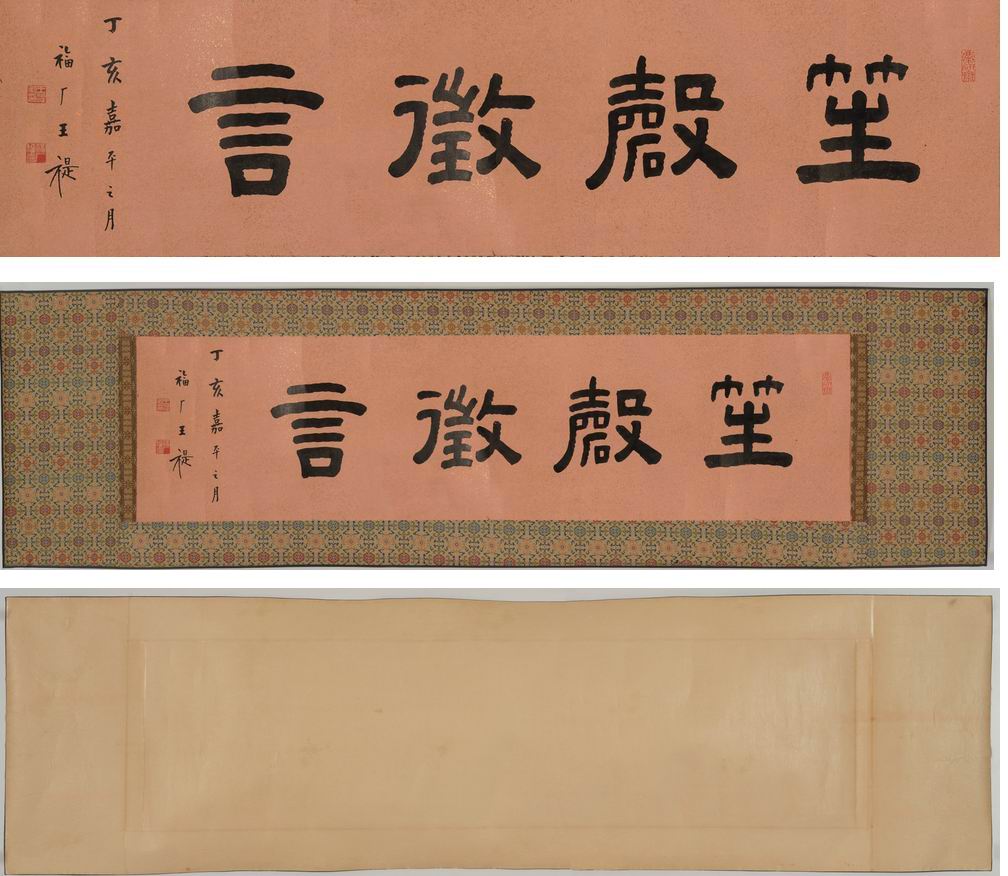 笙磬徵言
丁亥嘉平之月
福厂王禔
笙磬徵言
丁亥嘉平之月
福厂王禔